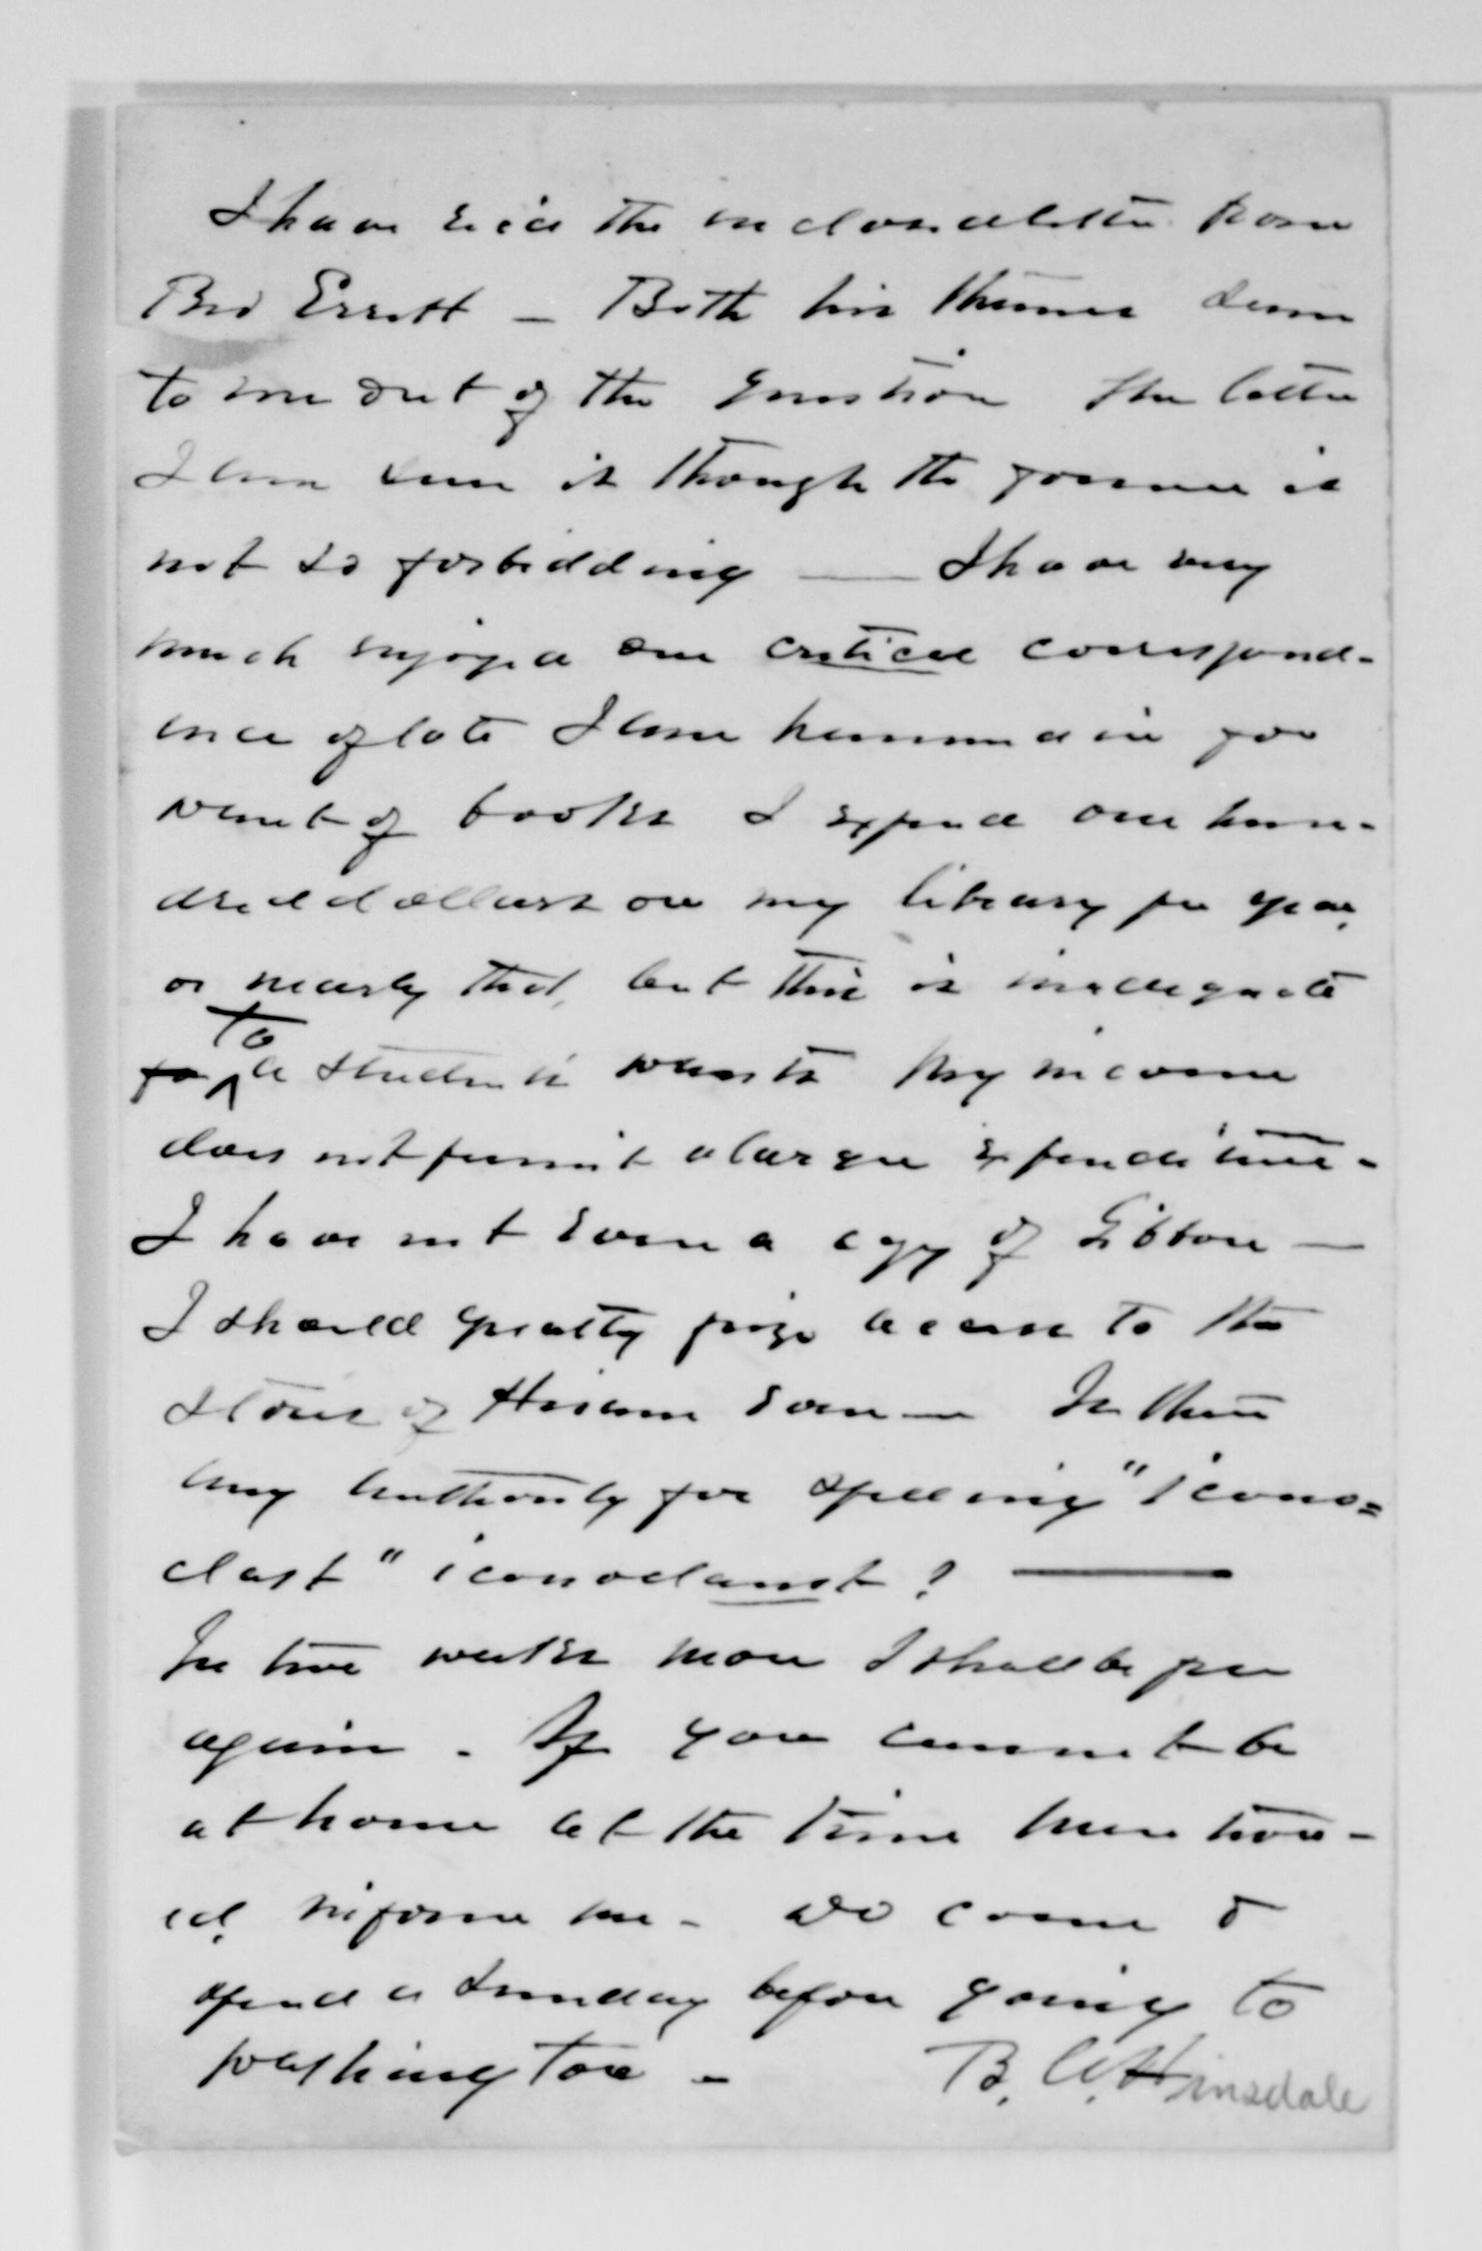 I have rec'd the enclosed letter from
Bro Errett – Both his themes seem
to me out of the question the latter
I am sure is though the former is
not so forbidding — I have very
much enjoyed our critical correspond-
ence of late I am hemmed in for
want of books I expend one hun-
dred dollars on my library per year,
or nearly that, but this is inadequate
for to a student's wants My income
does not permit a larger expenditure-
I have not even a copy of Gibbon —
I should greatly prize access to the
stores of Hiram even — Is there
any authority for spelling "icono=
clast" iconoclasmst ? —
In two weeks more I shall be free
again. If you cannot be
at home at the time mention-
ed, inform me - Do come &
spend a Sunday before going to
Washington -
B. A. Hinsdale